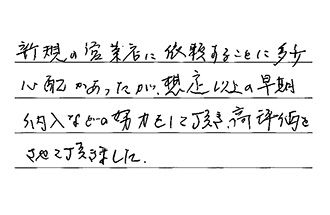 新規の営業店に依頼することに多少
心配があったが、想定以上の早期
納入などの努力をして頂き、高評価を
させて頂きました.